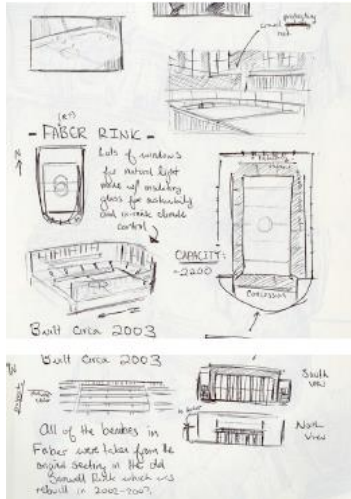 protecting
net
- FABER RINK -
N
Lots of windows
for natural light
made w/ insulating
glass for sustainability
and in-rink climate
control
CAPACITY:
~2200
CONCESSIONS
Built Circa 2003
Built Circa 2003
South
View
North
View
All of the benches in
Faber were taken from the
original seating in the old
Rink which was
rebuilt in 2002-2003